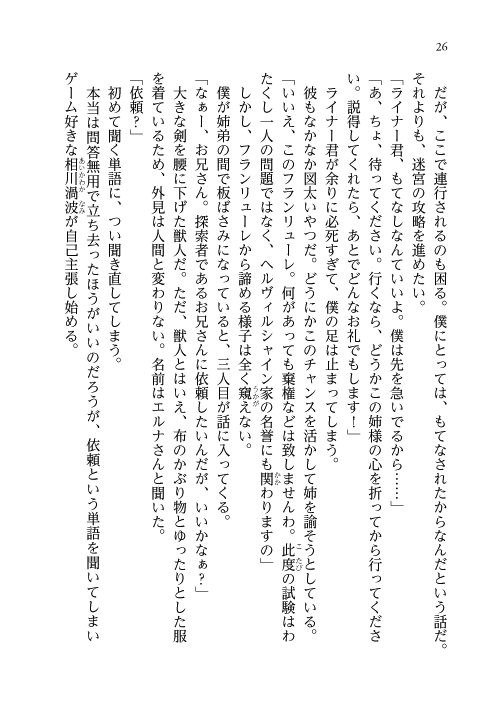 26
だが、ここで連行されるのも困る。僕にとっては、もてなされたからなんだという話だ。
それよりも、迷宮の攻略を進めたい。
「ライナー君、もてなしなんていいよ。僕は先を急いでるから……」
「あ、ちょ、待ってください。行くなら、どうかこの姉様の心を折ってから行ってくださ
い。説得してくれたら、あとでどんなお礼でもします！」
ライナー君が余りに必死すぎて、僕の足は止まってしまう。
彼もなかなか図太いやつだ。どうにかこのチャンスを活かして姉を諭そうとしている。
「いいえ、このフランリューレ。何があっても棄権などは致しませんわ。此度の試験はわ
たくし一人の問題ではなく、ヘルヴィルシャイン家の名誉にも関わりますの」
しかし、フランリューレから諦める様子は全く窺えない。
僕が姉弟の間で板ばさみになっていると、三人目が話に入ってくる。
「なぁー、お兄さん。探索者であるお兄さんに依頼したいんだが、いいかなぁ？」
大きな剣を腰に下げた獣人だ。ただ、獣人とはいえ、布のかぶり物とゆったりとした服
を着ているため、外見は人間と変わりない。名前はエルナさんと聞いた。
「依頼？」
初めて聞く単語に、つい聞き直してしまう。
本当は問答無用で立ち去ったほうがいいのだろうが、依頼という単語を聞いてしまい
ゲーム好きな相川渦波が自己主張し始める。